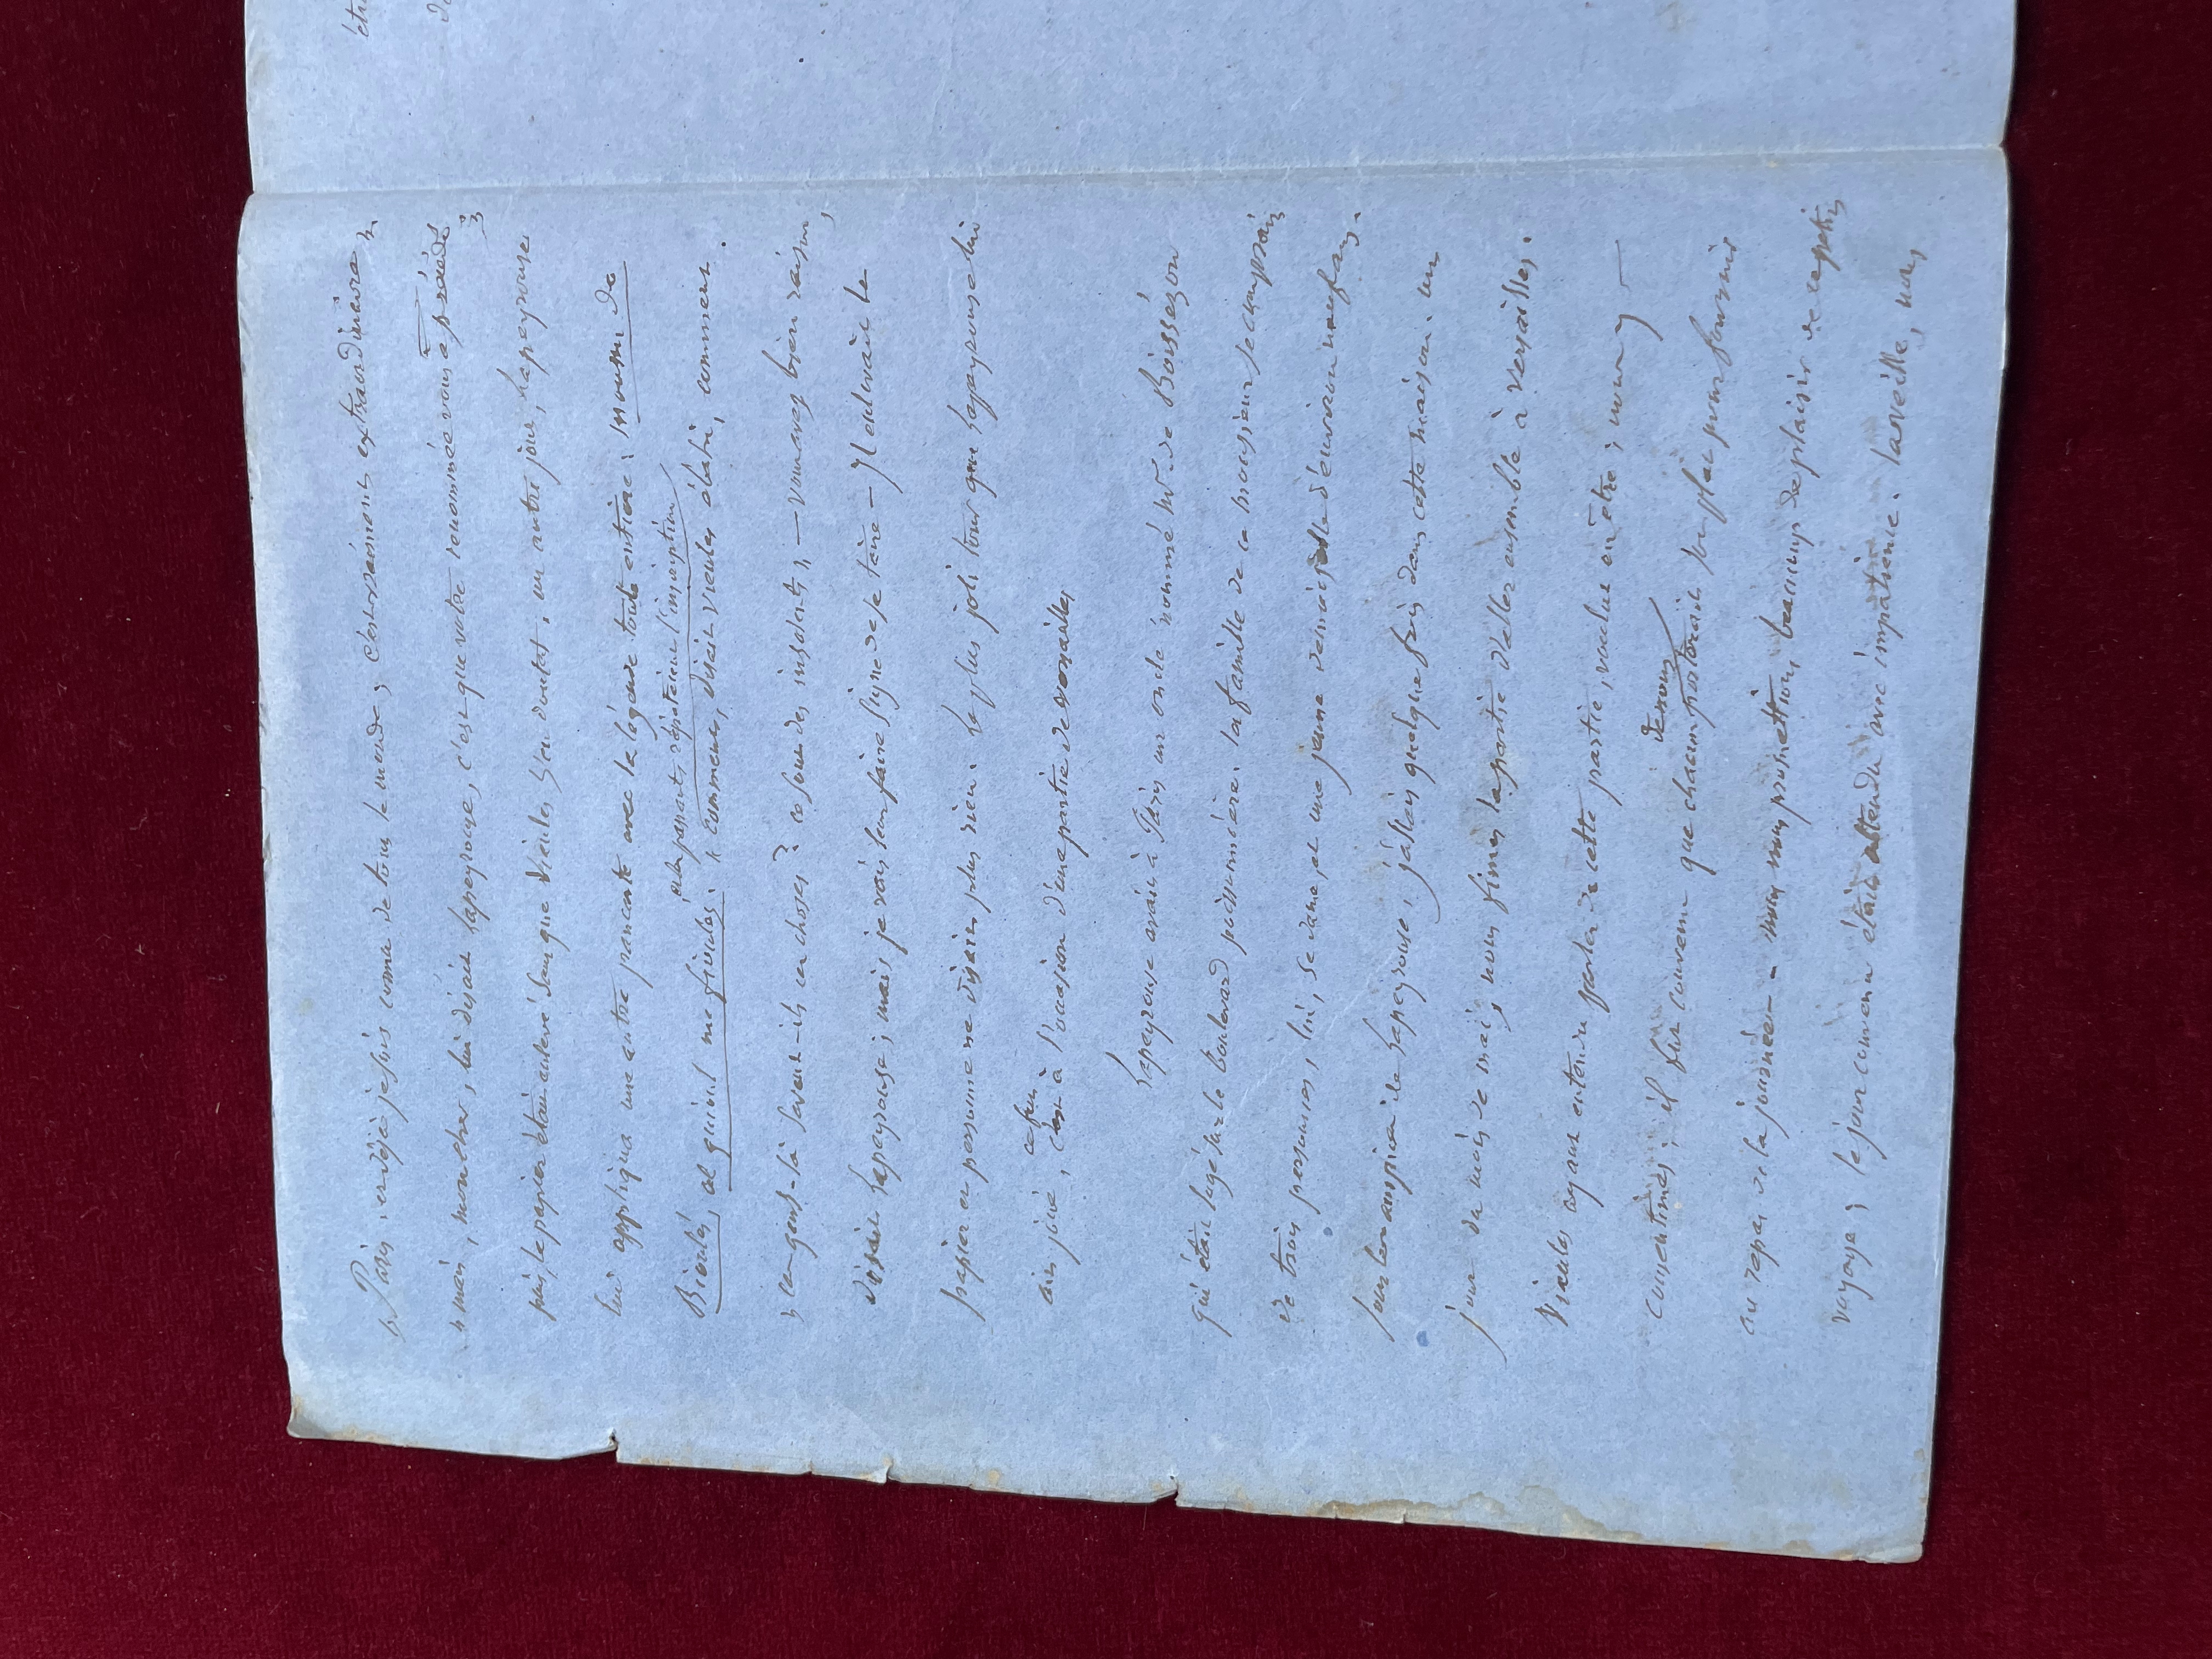 étr
" Paris, et déjà je suis connu de tout le monde, c'est vraiment extraordinaire "
" mais, mon cher, lui disait Lapeyrouse, c'est que votre renommée vous a précédé "
puis, le papier était enlevé sans que Vieules s'en doutat. un autre jour, Lapeyrouse
lui appliqua une autre pancarte avec la légende toute entière: moussu de
et les passants répétaient l'inscription
Bioulés, al quioul me fioulés. " comment, disait Vieules ébahi, comment
" ces gens-là savent-ils ces choses? ce sont des insolents, — vous avez bien raison,
disait Lapeyrouse; mais je vais leur faire signe de se taire — il enlevait le
papier et personne ne disait plus rien. le plus joli tour que Lapeyrouse lui
ce fut
ait joué, c'est à l'occasion d'une partie de Versailles
Lapeyrouse avait à Paris un oncle nommé Mr de Boissezon
qui était logé sur le boulevard poissonnière. la famille de ce monsieur se composait
de trois personnes, lui, sa dame, et une jeune demoiselle d'environ onze ans.
sous les auspices de Lapeyrouse, j'allais quelquefois dans cette maison. un
jour du mois de mai, nous fimes la partie d'aller ensemble à Versailles.
Vieules ayant entendu parler de cette partie, voulut en être; nous y
consentimes; il fut convenu que chacun de nous porterait son plat pour fournir
au repas de la journée — nous nous promettions beaucoup de plaisir de ce petit
voyage; le jour convenu était attendu avec impatience. la veille, nous